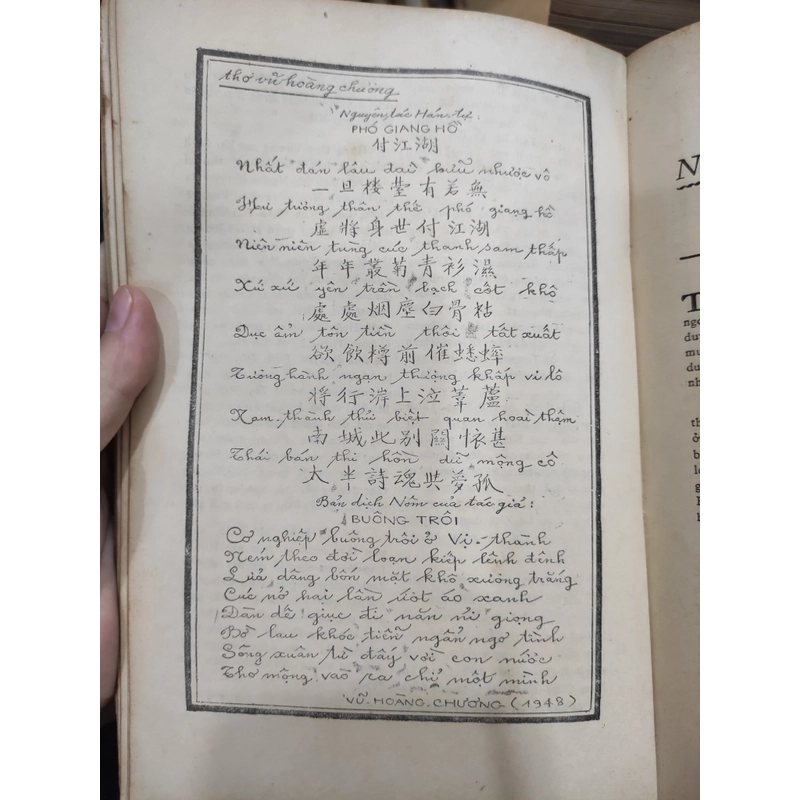 thơ vũ hoàng chương
Nguyên tác Hán tự
PHÓ GIANG HỒ
付江湖
Nhất đán lâu đài hữu nhược vô
一旦楼臺有若無
Hư tương thân thế phó giang hồ
虛將身世付江湖
Niên niên tùng cúc thanh sam thấp
年年叢菊青衫濕
Xứ xứ yên trần bạch cốt khô
處處烟塵白骨枯
Dục ẩm tôn tiền thôi tất xuất
欲飲樽前催蟋蟀
Tương hành ngạn thượng khấp vi lô
將行岸上泣葦蘆
Nam thành thử biệt quan hoài thậm
南城此別關懷甚
Thái bán thi hồn dữ mộng cô
太半詩魂與夢孤
Bản dịch Nôm của tác giả:
BUÔNG TRÔI
Cơ nghiệp buông trôi ở Vị-thành
Ném theo đời loạn kiếp lênh đênh
Lửa dâng bốn mặt khô xương trắng
Cúc nở hai lần ướt áo xanh
Dàn dế giục đi năn nỉ giọng
Bờ lau khóc tiễn ngẩn ngơ tình
Sông xuân từ đấy với con nước
Thơ mộng vào ra chỉ một mình
VŨ HOÀNG CHƯƠNG (1948)
N
T